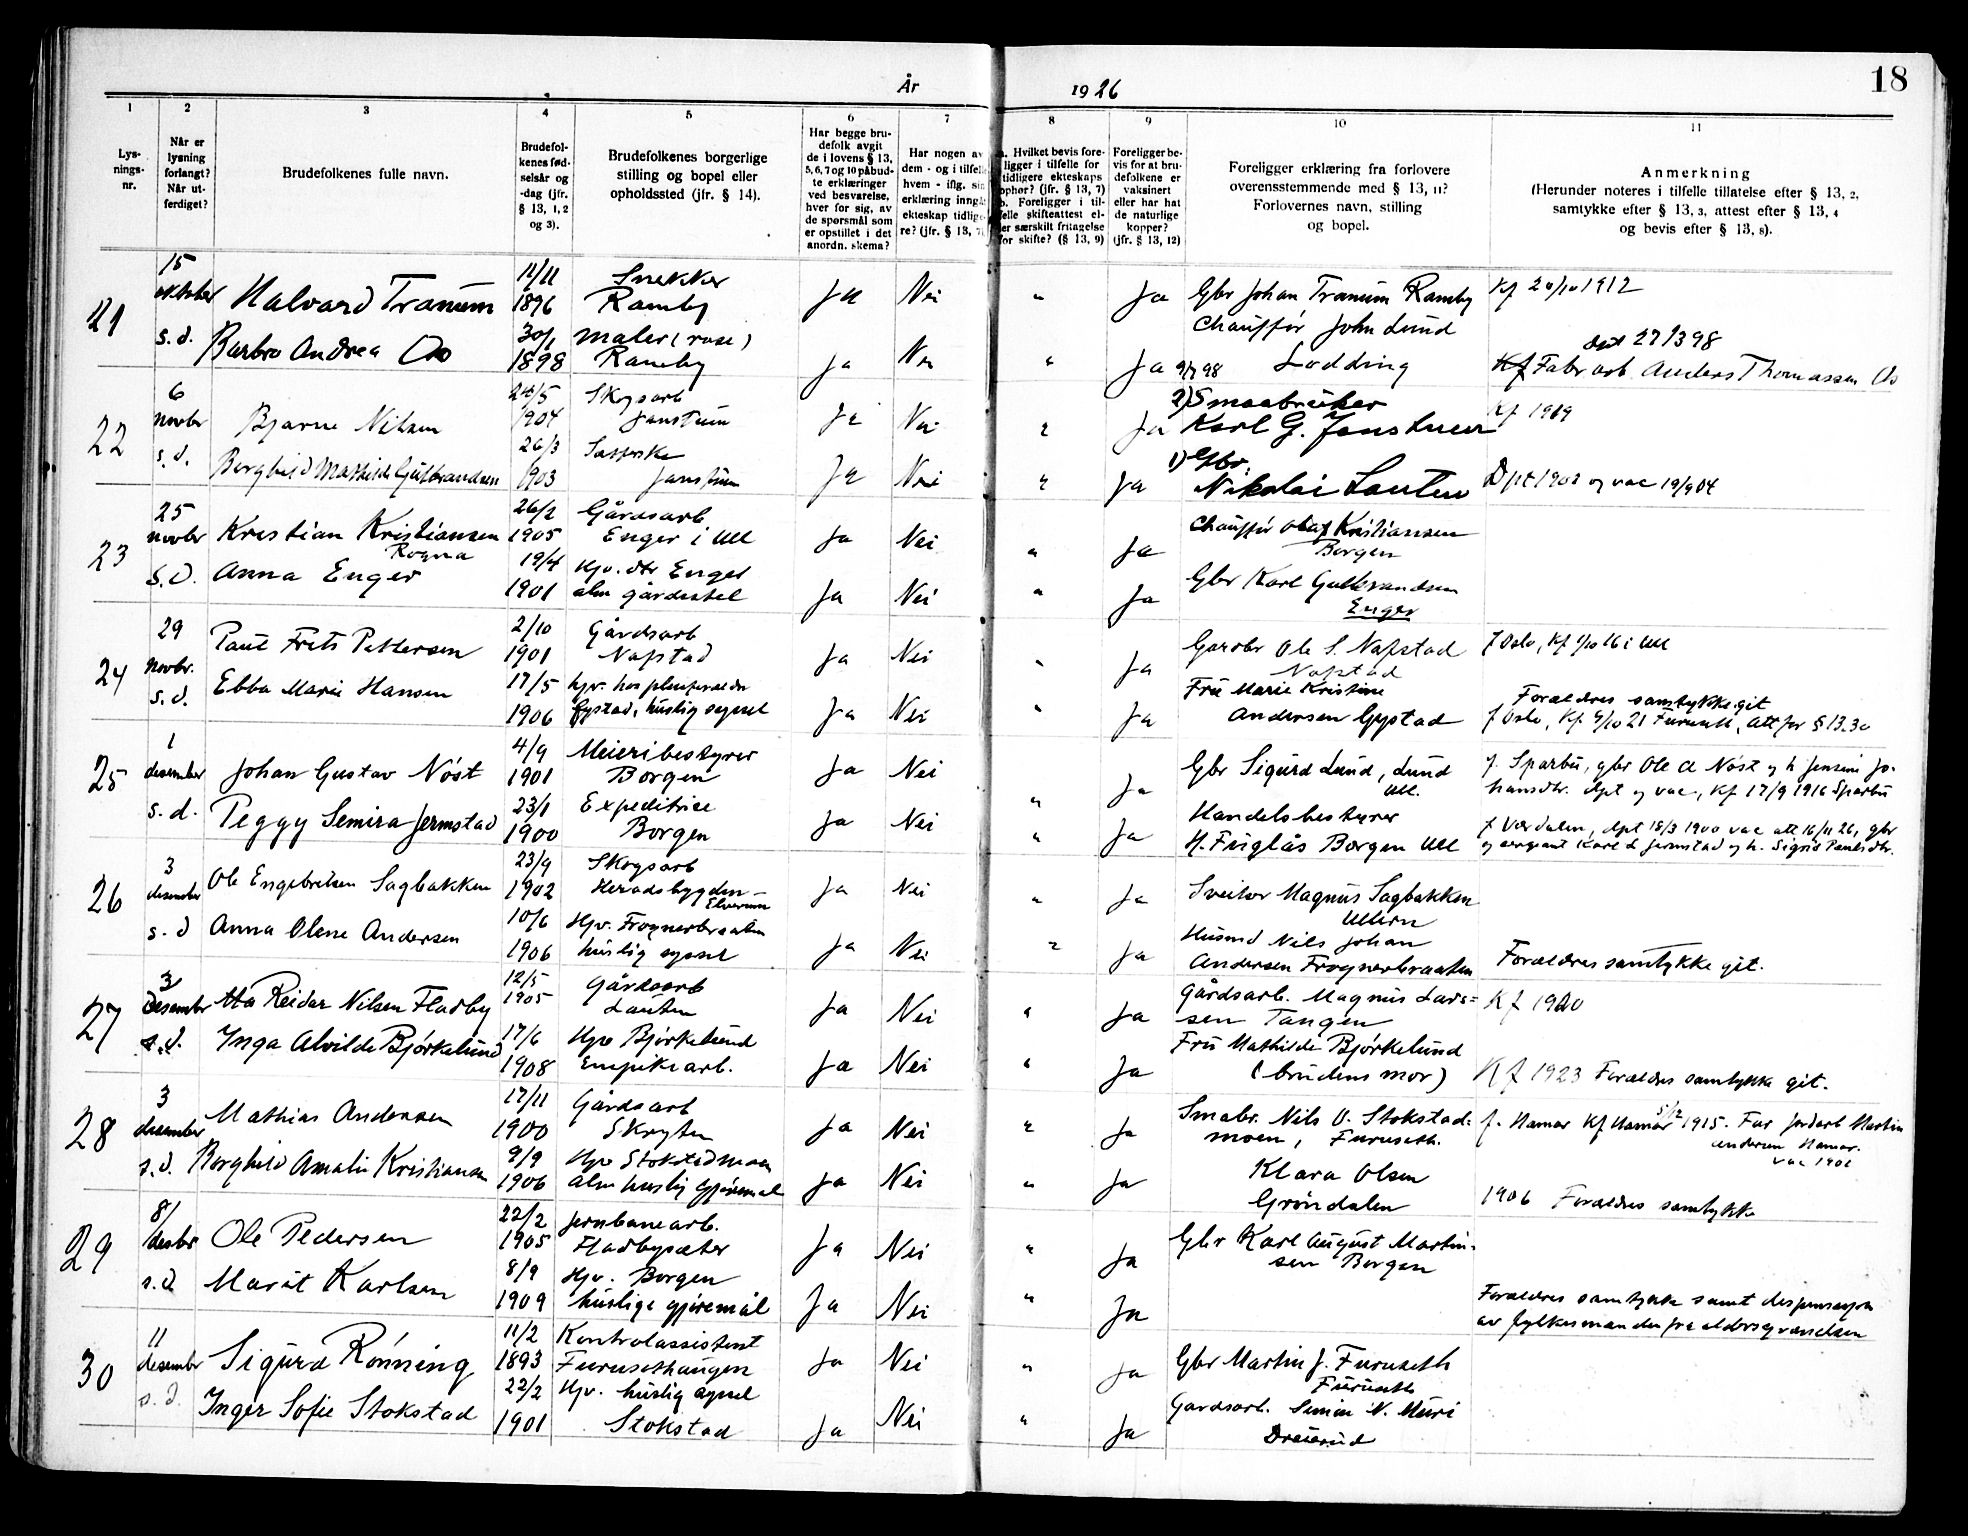 18
År 1926
1 2 3 4 5 6 7 8 9 10 11
Lys-
nings-
nr.
Når er
lysning
forlangt?
Når ut-
ferdiget?
Brudefolkenes fulle navn.
Brudefol-
kenes fød-
selsår og
-dag (jfr.
§ 13, 1, 2
og 3).
Brudefolkenes borgerlige
stilling og bopel eller
opholdssted (jfr. § 14).
Har begge bru-
defolk avgit
de i lovens § 13,
5, 6, 7 og 10 påbud-
te erklæringer
ved besvarelse,
hver for sig, av
de spørsmål som
er opstillet i det
anordn. skema?
Har nogen av
dem - og i tilfelle
hvem - iflg. sin
erklæring inngåt
ekteskap tidlige-
re? (jfr. § 13, 7)
a. Hvilket bevis fore-
ligger i tilfelle for
tidligere ekteskaps
ophør? (jfr. § 13, 7)
b. Foreligger i til-
felle skifteattest el-
ler særskilt fritagelse
for skifte? (§ 13, 9)
Foreligger be-
vis for at bru-
defolkene er
vaksinert
eller har hat
de naturlige
kopper?
(jfr. § 13, 12)
Foreligger erklæring fra forlovere
overensstemmende med § 13, 11?
Forlovernes navn, stilling
og bopel.
Anmerkning
(Herunder noteres i tilfelle tillatelse efter § 13, 2,
samtykke efter § 13, 3, attest efter § 13, 4
og bevis efter § 13, 8).
21
15
oktober
s.d.
Halvard Tranum
11/11
1896
Snekker
Ramby
Ja Nei " Ja
Gbr Johan Tranum Ramby
Kf 20/10 1912
Barbro Andrea Os
30/1
1898
maler (rose)
Ramby
Ja Nei " Ja
Chauffør John Lund
Lodding
9/7 98
døpt 27/3 98
Fabr arb. Anders Thomassen Os
22
6
novbr
s.d.
Bjarne Nilsen
24/5
1904
Skogsarb
Janstuen
Ja Nei " Ja
2) Smaabruker
Karl G. Janstuen
Kf 1919
Borghild Mathilde Gulbrandsen
26/3
1903
Janstuen
Ja Nei " Ja
1) Gbr.
Nikolai Lauten
Døpt 1903 og vac 19/9 04
23
25
novbr
s.d.
Kristian Kristiansen
Rogna
26/2
1905
Gårdsarb
Enger i Ull
Ja Nei " Ja
Chauffør Olaf Kristiansen
Borgen
Anna Enger
19/4
1901
Hjv. dtr Enger
alm gårdsstel
Ja Nei " Ja
Gbr Karl Gulbrandsen
Enger
24
29
novbr.
s.d.
Paul Frits Pettersen
2/10
1901
Gårdsarb
Nafstad
Ja Nei " Ja
Garbr Ole S. Nafstad
Nafstad
f Oslo, Kf 1/10 16 i Ull
Ebba Marie Hansen
17/5
1906
hjv. hos pleiforeldr
Gystad, huslig syssel
Ja Nei " Ja
Fru Marie Kristine
Andersen Gystad
Forældres samtykke git
f Oslo, Kf 9/10 21 Furuseth, Att for § 13.3c
25
1
desember
s.d.
Johan Gustav Nöst
4/9
1901
Meieribestyrer
Borgen
Ja Nei " Ja
Gbr Sigurd Lund, Lund
Ull.
f. Sparbu, gbr Ole A Nöst og h Jensine Jo-
hansdtr. døpt og vac, Kf 17/9 1916 Sparbu
Peggy Semira Jermstad
23/1
1900
Expeditrise
Borgen
Ja Nei " Ja
Handelsbestyrer
H. Fuglås Borgen Ull
f Værdalen, døpt 18/3 1900 vac att 16/11 26, gbr
og sergeant Karl L Jermstad og h. Sigrid Paulsdtr.
26
3
desember
s.d
Ole Engebretsen Sagbakken
23/9
1902
Skogsarb
Heradsbygden-
Elverum
Ja Nei " Ja
Sveitser Magnus Sagbakken
Ullern
Anna Olene Andersen
10/6
1906
Hjv. Frognerbraaten
huslig syssel
Ja Nei " Ja
Husmd Nils Johan
Andersen Frognerbraaten
Forældres samtykke git.
27
3/
desember
s.d.
Otto Reidar Nilsen Fladby
12/5
1905
Gårdsarb
Lauten
Ja Nei " Ja
Gårdsarb. Magnus Lars=
sen Tangen
Kf 1920
Inga Alvilde Bjørkelund
17/6
1908
Hjv Bjørkelund
Empikearb.
Ja Nei " Ja
Fru Mathilde Bjørkelund
(brudens mor)
Kf 1923 Forældres samtykke git.
28
3
desember
s.d.
Mathias Andersen
17/11
1900
Gårdsarb
Skryten
Ja Nei " Ja
Smabr. Nils O. Stokstad-
moen, Furuseth.
f. Hamar Kf Hamar 5/12 1915. Far jordarb Martin
Andersen Hamar.
vac 1901
Borghild Amalie Kristiansen
9/9
1906
Hjv Stokstadmoen
alm huslig gjøremål
Ja Nei " Ja
Klara Olsen
Gröndalen
1906 Forældres samtykke
29
8/
desbr
s.d
Ole Pedersen
22/2
1905
Jernbanearb.
Fladbysæter
Ja Nei " Ja
Gbr Karl August Martin-
sen Borgen
Marit Karlsen
8/9
1909
Hjv. Borgen
huslige gjøremål
Ja Nei " Ja
Forældres samtykke samt dispensasjon
av fylkesmanden fra aldersgrændsen
30
11
desember
s.d.
Sigurd Rönning
11/2
1893
Kontrolassistent
Furusethaugen
Ja Nei " Ja
Gbr Martin J. Furuseth
Furuseth
Inger Sofie Stokstad
22/2
1901
Hjv. huslig syssel
Stokstad
Ja Nei " Ja
Gardsarb. Simen N. Muri
Dreierud